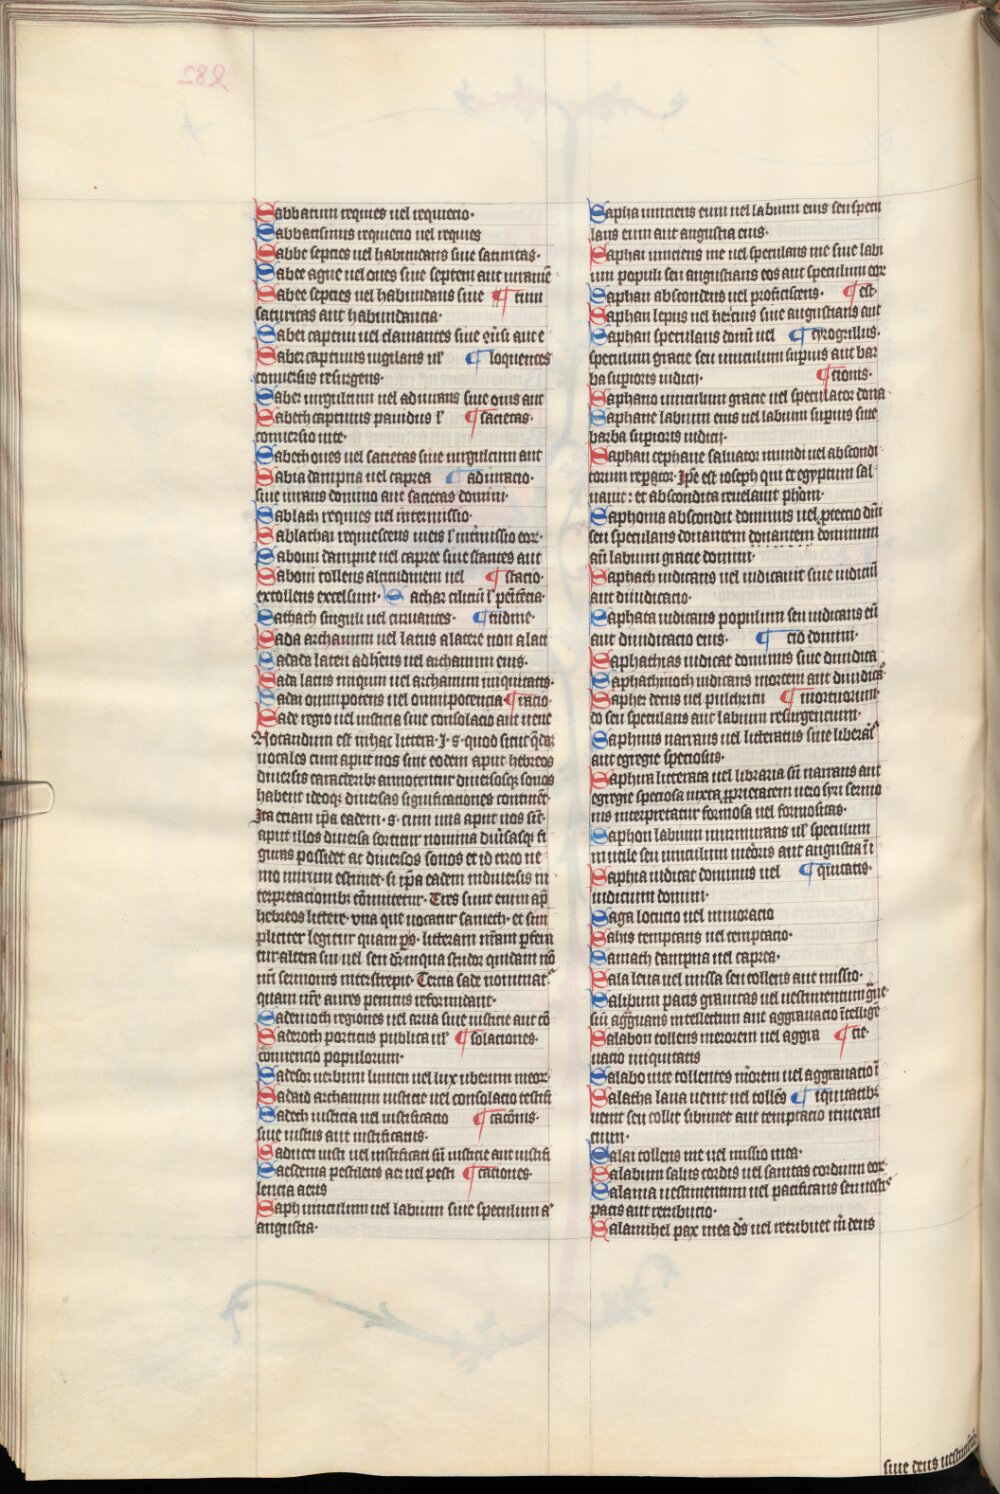 Sabbatum requies uel requietio·
Sabbatismus requietio uel requies
Sabbe septies uel habundans siue saturitas·
Sabee agne uel oues siue septem aut
Sabee septies uel habundans siue ¶ tium
saturitas aut habundancia·
Sabei captiui uel clamantes siue aut e
Saber captiuus uigilans ul' ¶ loquentes
conuersus resurgens·
Saber uirgultum uel adiurans siue ouis aut
Sabeth captiuus pauidus l' ¶ sacietas·
conuersio uite·
Sabeth oues uel sacietas siue uirgultum aut
Sabia dampna uel caprea ¶ adiuracio·
siue iurans domino aut sacietas domini·
Sablath requies uel intermissio·
Sablathai requiescens meis l' eor·
Saboim dampne uel capree siue stantes aut
Sabom tollens altitudinem uel ¶ stacio·
extollens excelsum· Sachar cilicium l'
Sachach singuli uel curuantes· ¶ tudine·
Sada archanum uel latus a latere non a lati
Sadada lateri adherens uel archanum eius·
Sada latus iniquum uel archanum iniquitatis·
Sadai omnipotens uel omnipotencia ¶ racio·
Sade regio uel iusticia siue consolacio aut uene
Notandum est in hac littera· I· s· quod sicut
uocales cum aput nos sint eedem aput hebreos
diuersis caracteribus annotentur diuersosque sonos
habent ideoque diuersas significationes continent·
Ita etiam ipsa eadem· s· cum una aput nos sit·
aput illos diuersa sortitur nomina diuersasque fi
guras possidet ac diuersos sonos et id circo ne
mo mirum estimet· si ipsa eadem in diuersis in
terpretacionibus commutetur· Tres sunt enim apud
hebreos littere· vna que uocatur samech· et sim
pliciter legitur quam per s· litteram nostram profera
tur altera sin uel sen in qua stridor quidam non
nostri sermonis interstrepit· Tercia sade nominatur
quam nostre aures penitus reformidant·
Sademoth regiones uel arua siue iusticie aut con
Saderoth porticus publica ul' ¶ solaciones·
conuencio populorum·
Sadesor uerbum lumen uel lux uberum meor·
Sadaid archanum iusticie uel consolacio testifi
Sadech iusticia uel iustificatio ¶ cationis·
siue iustus aut iustificatus·
Saducei iusti uel iustificati siue iusticie aut iustifi
Saesdema pestilens aer uel pesti ¶ caciones·
lencia aeris
Saph uinculum uel labium siue speculum aut
angustia·
Sapha uinciens eum uel labium eius seu specu
lans eum aut angustia eius·
Saphai uinciens me uel speculans me siue labi
um populi seu angustians eos aut speculum eor
Saphan abscondens uel proficiscens· ¶ est·
Saphan lepus uel hericius siue angustians aut
Saphan speculans domum uel ¶ cyrogrillus·
speculum gracie seu uinculum superius aut bar
ba superioris iudicii· ¶ tionis·
Saphano uinculum gracie uel speculator dona
Saphane labium eius uel labium superius siue
barba superioris iudicii·
Saphan cephane saluator mundi uel abscondi
torum repertor· Ipse est ioseph qui et egyptum sal
uauit: et abscondita reuelauit
Saphonia abscondit dominus uel protectio domini
seu speculans donantem donantem dominum
aut labium gracie domini·
Saphath iudicans uel iudicauit siue iudicium
aut diiudicatio·
Saphata iudicans populum seu iudicans eum
aut diiudicacio eius· ¶ cio domini·
Saphathias iudicat dominus siue diiudica
Saphathmoth iudicans mortem aut diiudicatio
Sapher decus uel pulchritu ¶ mortuorum·
do seu speculans aut labium resurgencium·
Saphinus narrans uel litteratus siue liberalis
aut egregie speciosus·
Saphira litterata uel libraria siue narrans aut
egregie speciosa iuxta proprietatem uero syri sermo
nis interpretatur formosa uel formositas·
Saphon labium murmurans ul' speculum
inutile seu uinculum meroris aut angustia ini
Saphia iudicat dominus uel ¶ quitatis·
iudicium domini·
Saga locutio uel immoracio
Sahis temptans uel temptacio·
Sainach dampna uel caprea·
Sala leua uel missa seu tollens aut missio·
Salibum pacis grauitas uel uestimentum
siue aggrauans intellectum aut aggrauacio intellige
Salabon tollens merorem uel aggra ¶ cie·
uacio iniquitatis
Salabo uite tollentes merorem uel aggrauacio i
Salacha laua uenit uel tollens ¶ iquitatibus
uenit seu tollit sibimet aut temptacio itineran
cium·
Salai tollens me uel missio mea·
Salabum salus cordis uel sanitas cordium eor
Salama uestimentum uel pacificans seu uestis
pacis aut retributio·
Salamihel pax mea deus uel retribuet michi deus
siue deus